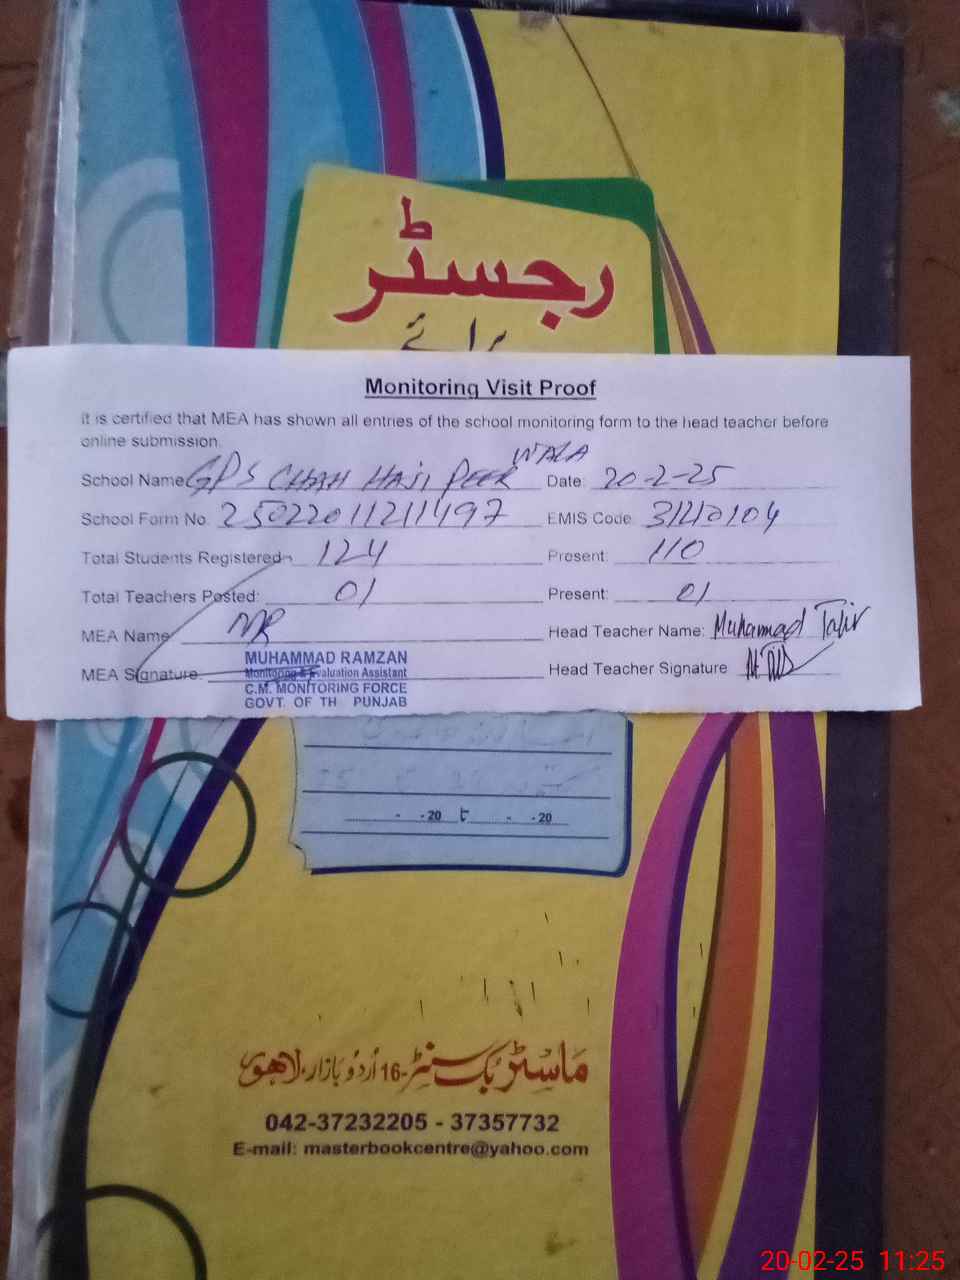 رجسٹر
برائے
Monitoring Visit Proof
It is certified that MEA has shown all entries of the school monitoring form to the head teacher before
online submission.
School Name GPS CHAH HAJI PEER WALA Date: 20-2-25
School Form No. 25022011211497 EMIS Code
Total Students Registered 124 Present: 110
Total Teachers Posted: 01 Present: 01
MEA Name MR Head Teacher Name: Muhammad Tahir
MEA Signature Head Teacher Signature
MUHAMMAD RAMZAN
Monitoring & Evaluation Assistant
C.M. MONITORING FORCE
GOVT. OF TH PUNJAB
- -20 تا - -20
ماسٹر بک سنٹر-16 اُردو بازار، لاہور
042-37232205 - 37357732
E-mail: masterbookcentre@yahoo.com
20-02-25 11:25